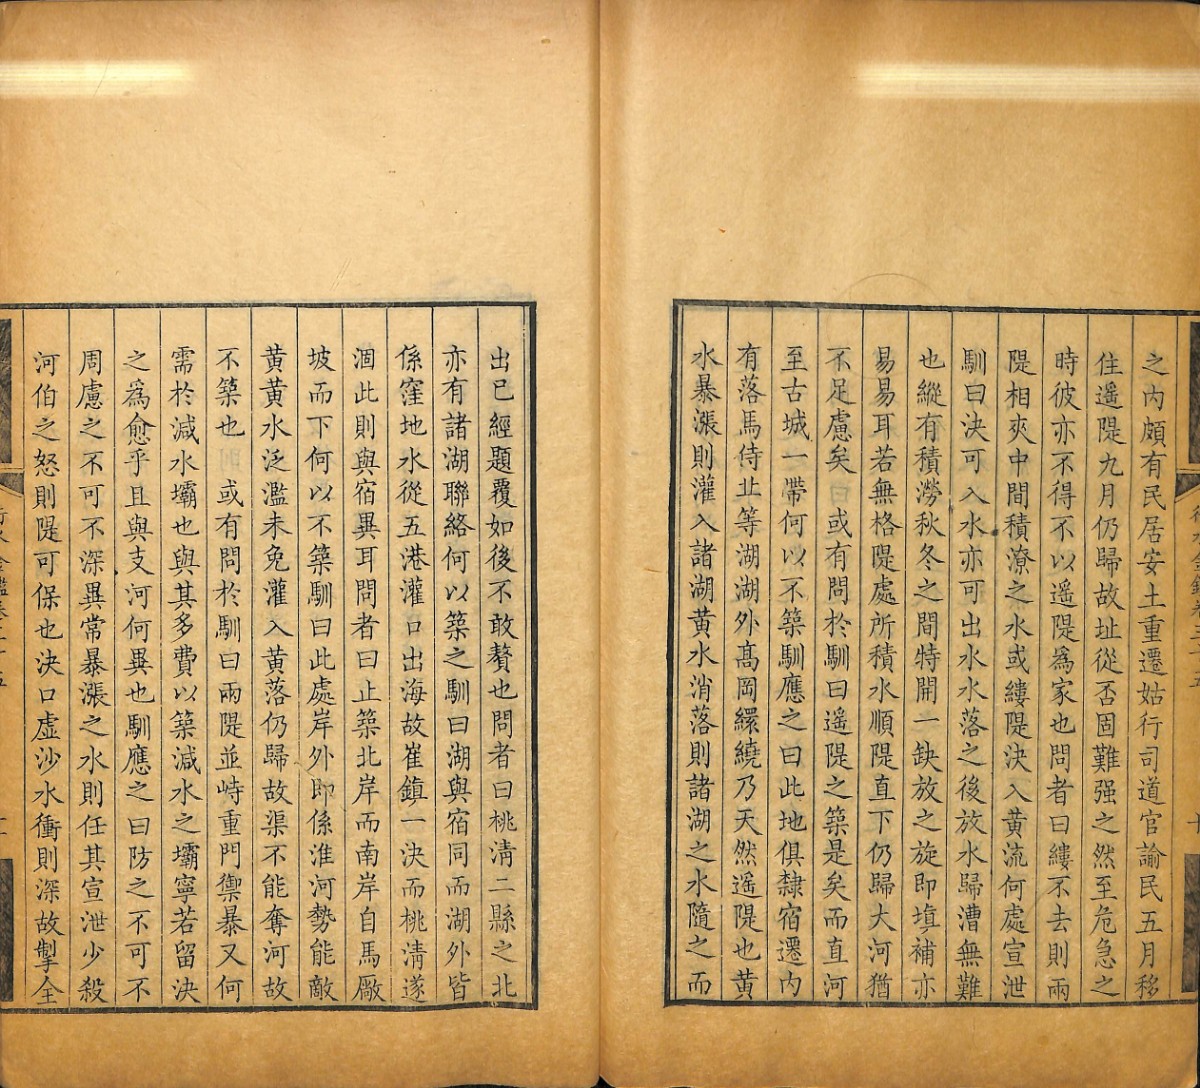 之内頗有民居安土重遷姑行司道官諭民五月移
住遥隄九月仍歸故址從否固難强之然至危急之
時彼亦不得不以遥隄爲家也問者曰縷不去則兩
隄相夾中間積潦之水或縷隄決入黄流何處宣泄
馴曰決可入水亦可出水水落之後放水歸漕無難
也縱有積澇秋冬之間特開一缺放之旋即塡補亦
易易耳若無格隄處所積水順隄直下仍歸大河猶
不足慮矣或有問於馴曰遥隄之築是矣而直河
至古城一帶何以不築馴應之曰此地俱隸宿遷内
有落馬侍丘等湖湖外髙岡繚繞乃天然遥隄也黄
水暴漲則灌入諸湖黄水消落則諸湖之水隨之而
出已經題覆如後不敢贅也問者曰桃清二縣之北
亦有諸湖聯絡何以築之馴曰湖與宿同而湖外皆
係窪地水從五港灌口出海故崔鎮一決而桃清遂
涸此則與宿異耳問者曰止築北岸而南岸自馬厰
坡而下何以不築馴曰此處岸外即係淮河勢能敵
黄黄水泛濫未免灌入黄落仍歸故渠不能奪河故
不築也或有問於馴曰兩隄並峙重門禦暴又何
需於減水壩也與其多費以築減水之壩寧若留決
之爲愈乎且與支河何異也馴應之曰防之不可不
周慮之不可不深異常暴漲之水則任其宣泄少殺
河伯之怒則隄可保也決口虛沙水衝則深故掣全